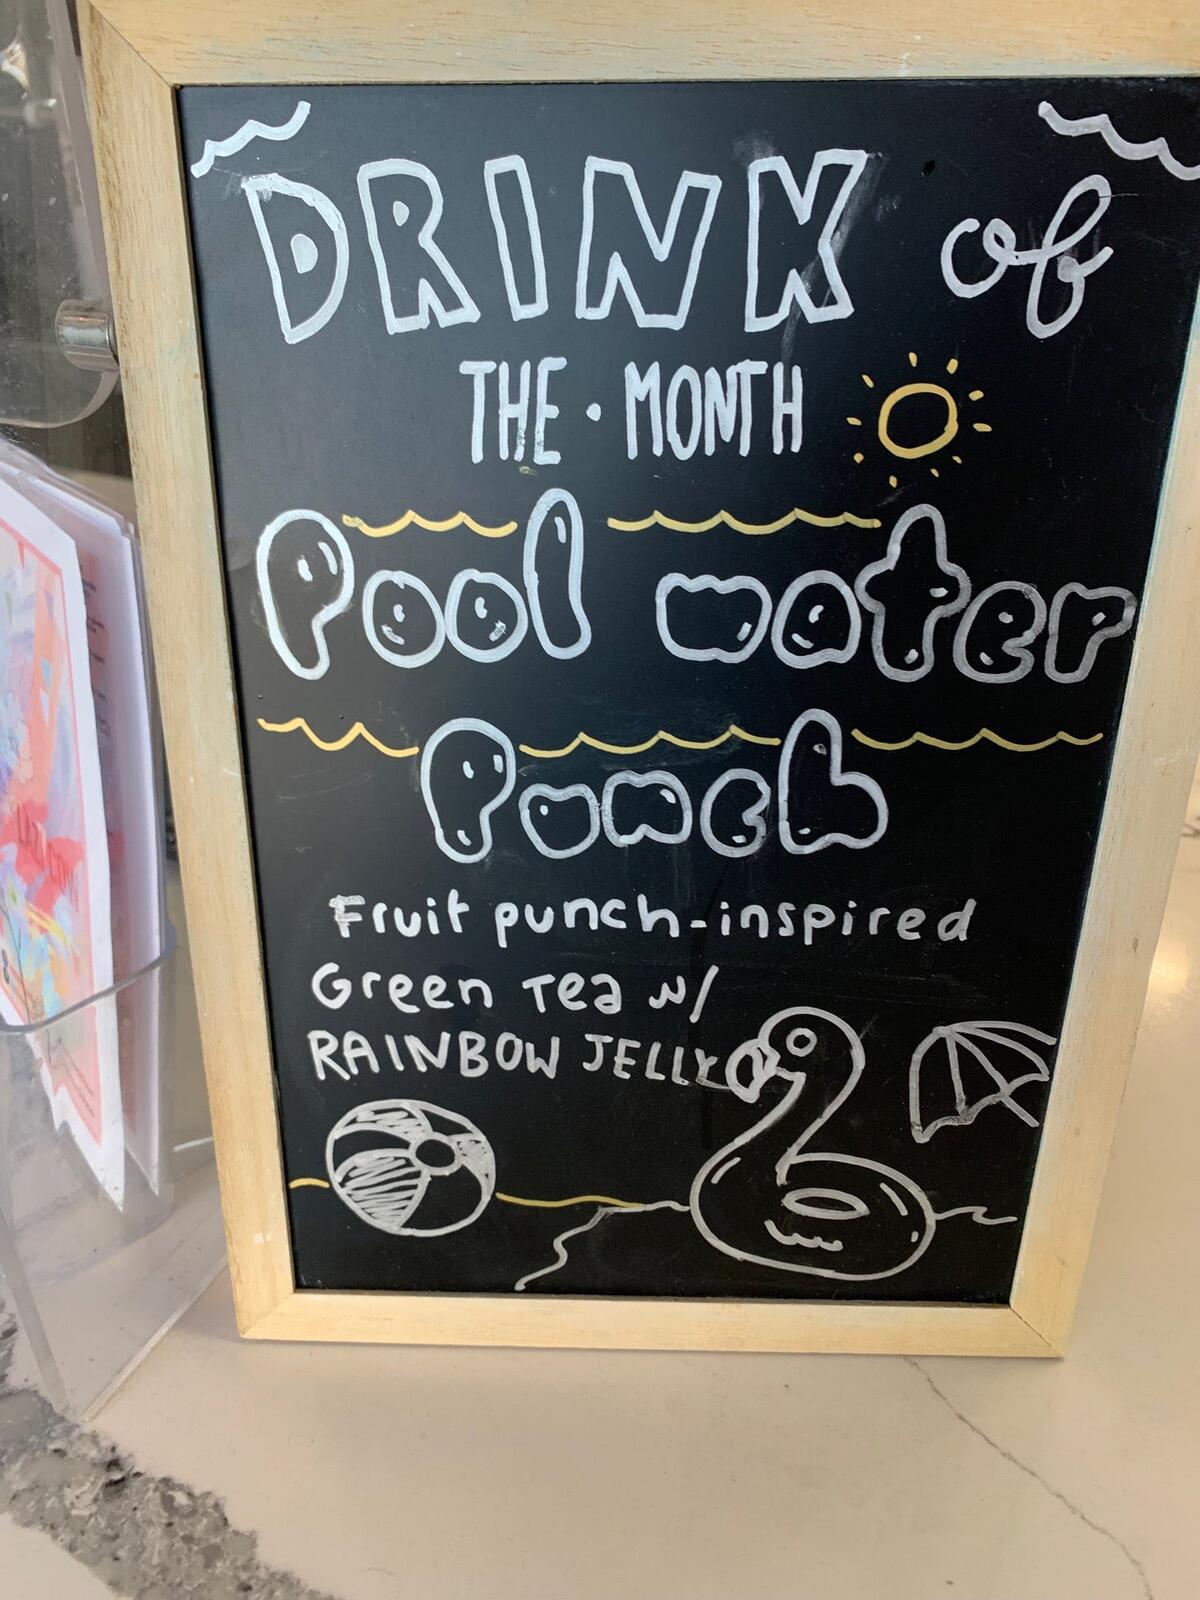 DRINK of
THE · MONTH
Pool water
Punch
Fruit punch-inspired
Green Tea w/
RAINBOW JELLY